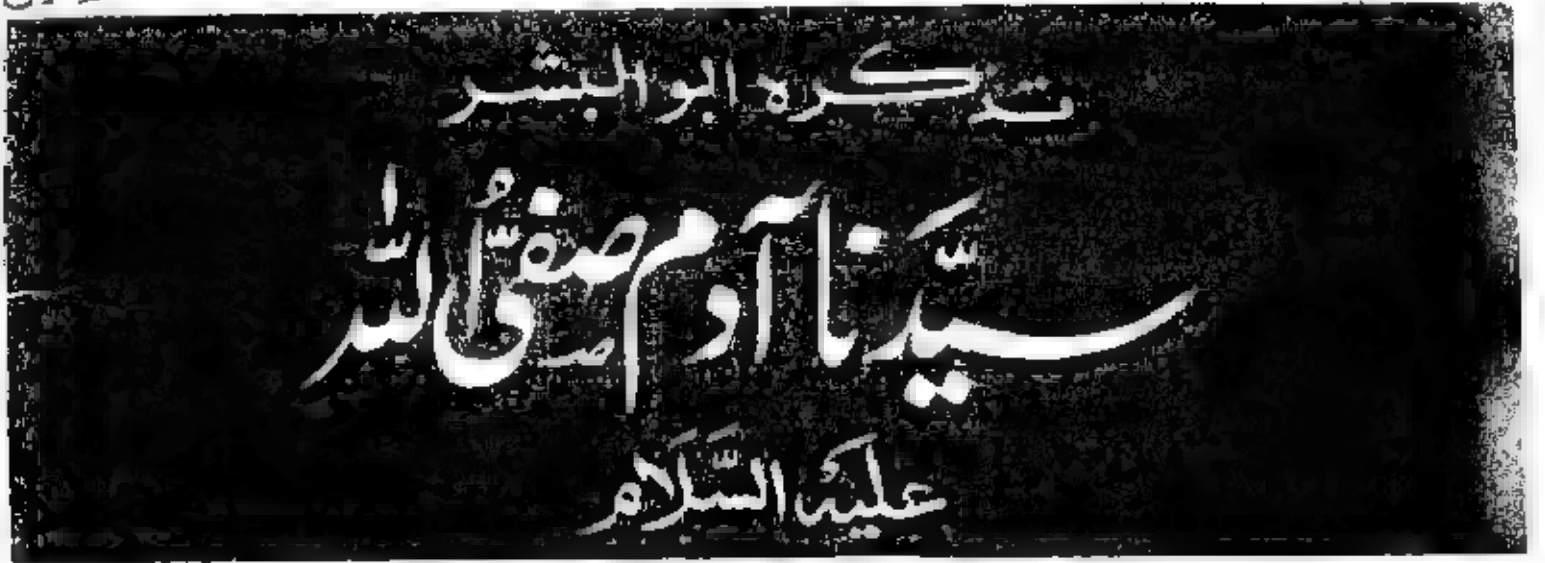 تذکرہ ابو البشر
سیّدَنا آدم صفیُّ اللہ
علیہ السَّلَام